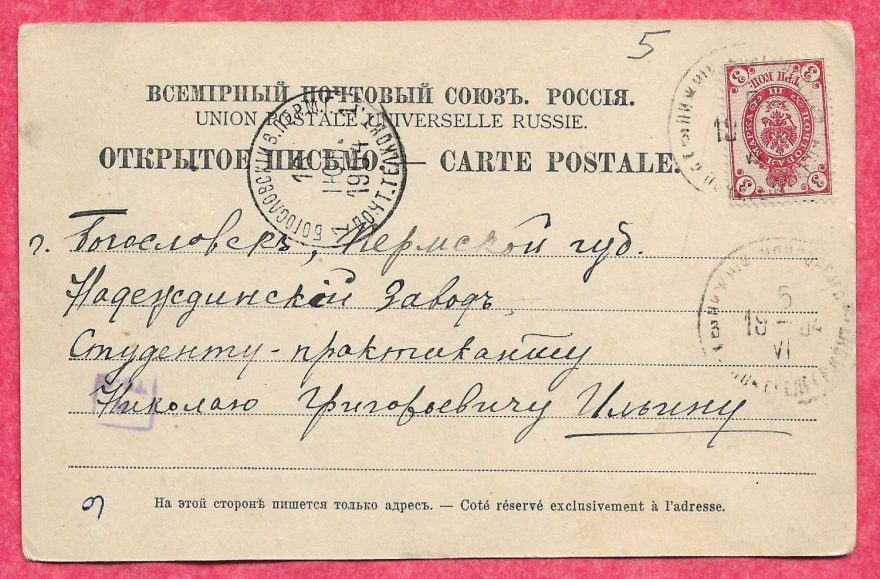 5
ВСЕМІРНЫЙ ПОЧТОВЫЙ СОЮЗЪ. РОССІЯ.
UNION POSTALE UNIVERSELLE RUSSIE.
ОТКРЫТОЕ ПИСЬМО. — CARTE POSTALE.
БОГОСЛОВСКІЙ З. ПЕРМ.
1904
3 ТРИ КОП. 3
МАРКА ПОЧТОВАЯ
3 3
г. Богословскъ, Пермской губ.
Надеждинскій Заводъ,
Студенту-практиканту
Николаю Григорьевичу Ильину
5
19 — 04
VI
На этой сторонѣ пишется только адресъ. — Coté réservé exclusivement à l'adresse.